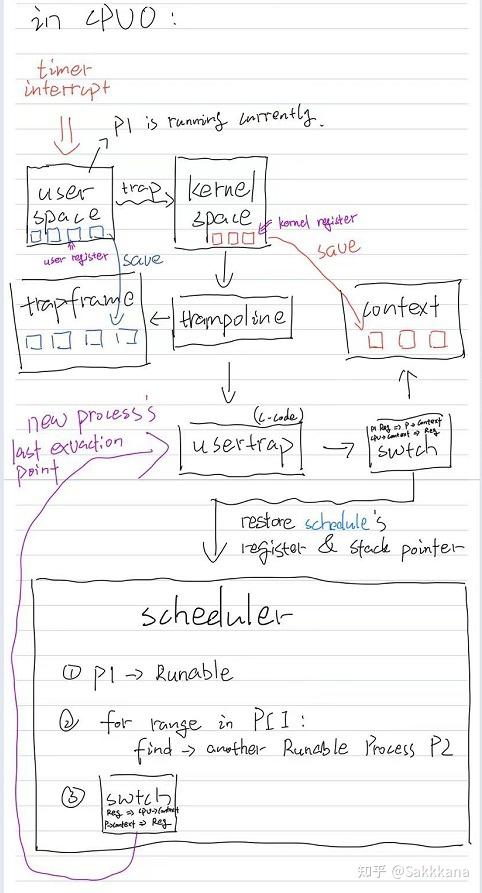 in CPU0 :
timer
interrupt
P1 is running currently.
user
space
trap
kernel
space
kernel register
user register
save
save
trapframe
trampoline
context
new process's
last exuaction
point
(C-code)
usertrap
P1 Reg => P->Context
CPU->Context => Reg
swtch
restore schedule's
register & stack pointer
scheduler
① P1 -> Runable
② for range in P[]:
find -> another Runable Process P2
③ swtch
Reg => CPU->Context
P->Context => Reg
知乎 @Sakkkana